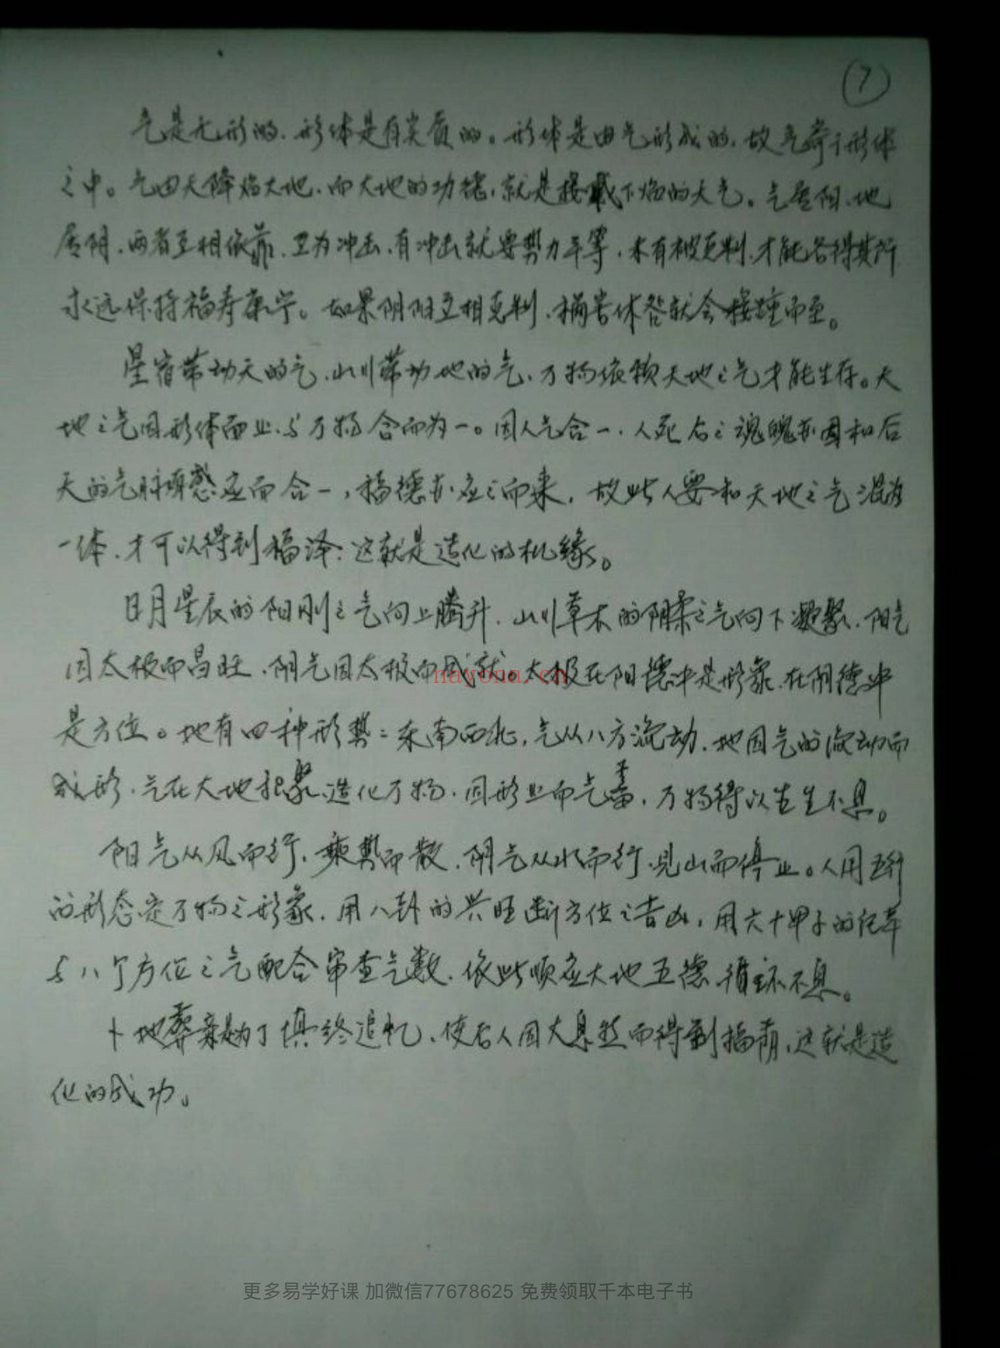 7
气是无形的、形体是有实质的。形体是由气形成的，故气寄于形体
之中。气由天降临大地，而大地的功德，就是接载下临的天气。气属阳、地
属阴、两者互相依靠，互为冲击，有冲击就要势力平等，未有被克制，才能各得其所
永远保持福寿康宁。如果阴阳互相克制，祸害休咎就会接踵而至。
星宿带动天的气、山川带动地的气，万物依赖天地之气才能生存。天
地之气因形体而止，与万物合而为一。因人气合一，人死后之魂魄亦因和后
天的气脉感应而合一，福德亦应之而来，故此人要和天地之气混为
一体，才可以得到福泽；这就是造化的机缘。
日月星辰的阳刚之气向上腾升，山川草木的阴柔之气向下凝聚，阳气
因太极而昌旺，阴气因太极而成就。太极在阳德中是形象，在阴德中
是方位。地有四种形势：东南西北，气从八方流动，地因气的流动而
成形，气在大地积聚，造化万物，因形止而气不蓄，万物得以生生不息。
阳气从风而行，乘势而散，阴气从水而行，见山而停止。人用五行
的形态定万物之形象，用八卦的兴旺断方位之吉凶，用六十甲子的纪年
与八个方位之气配合审查气数，依此顺应大地五德，循环不息。
卜地葬亲为了慎终追忆，使后人因大自然而得到福荫，这就是造
化的成功。
nayona.cn
更多易学好课 加微信77678625 免费领取千本电子书